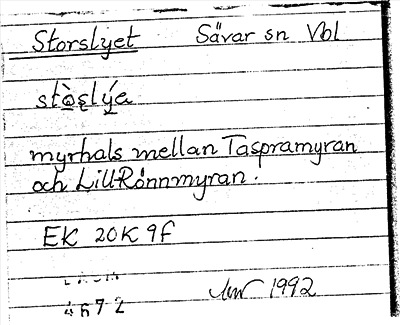 Storslyet Sävar sn Vbl
stò̱ʂlý̱a
myrhals mellan Taspramyran
och Lill-Rönnmyran.
EK 20K 9f
1992
4672